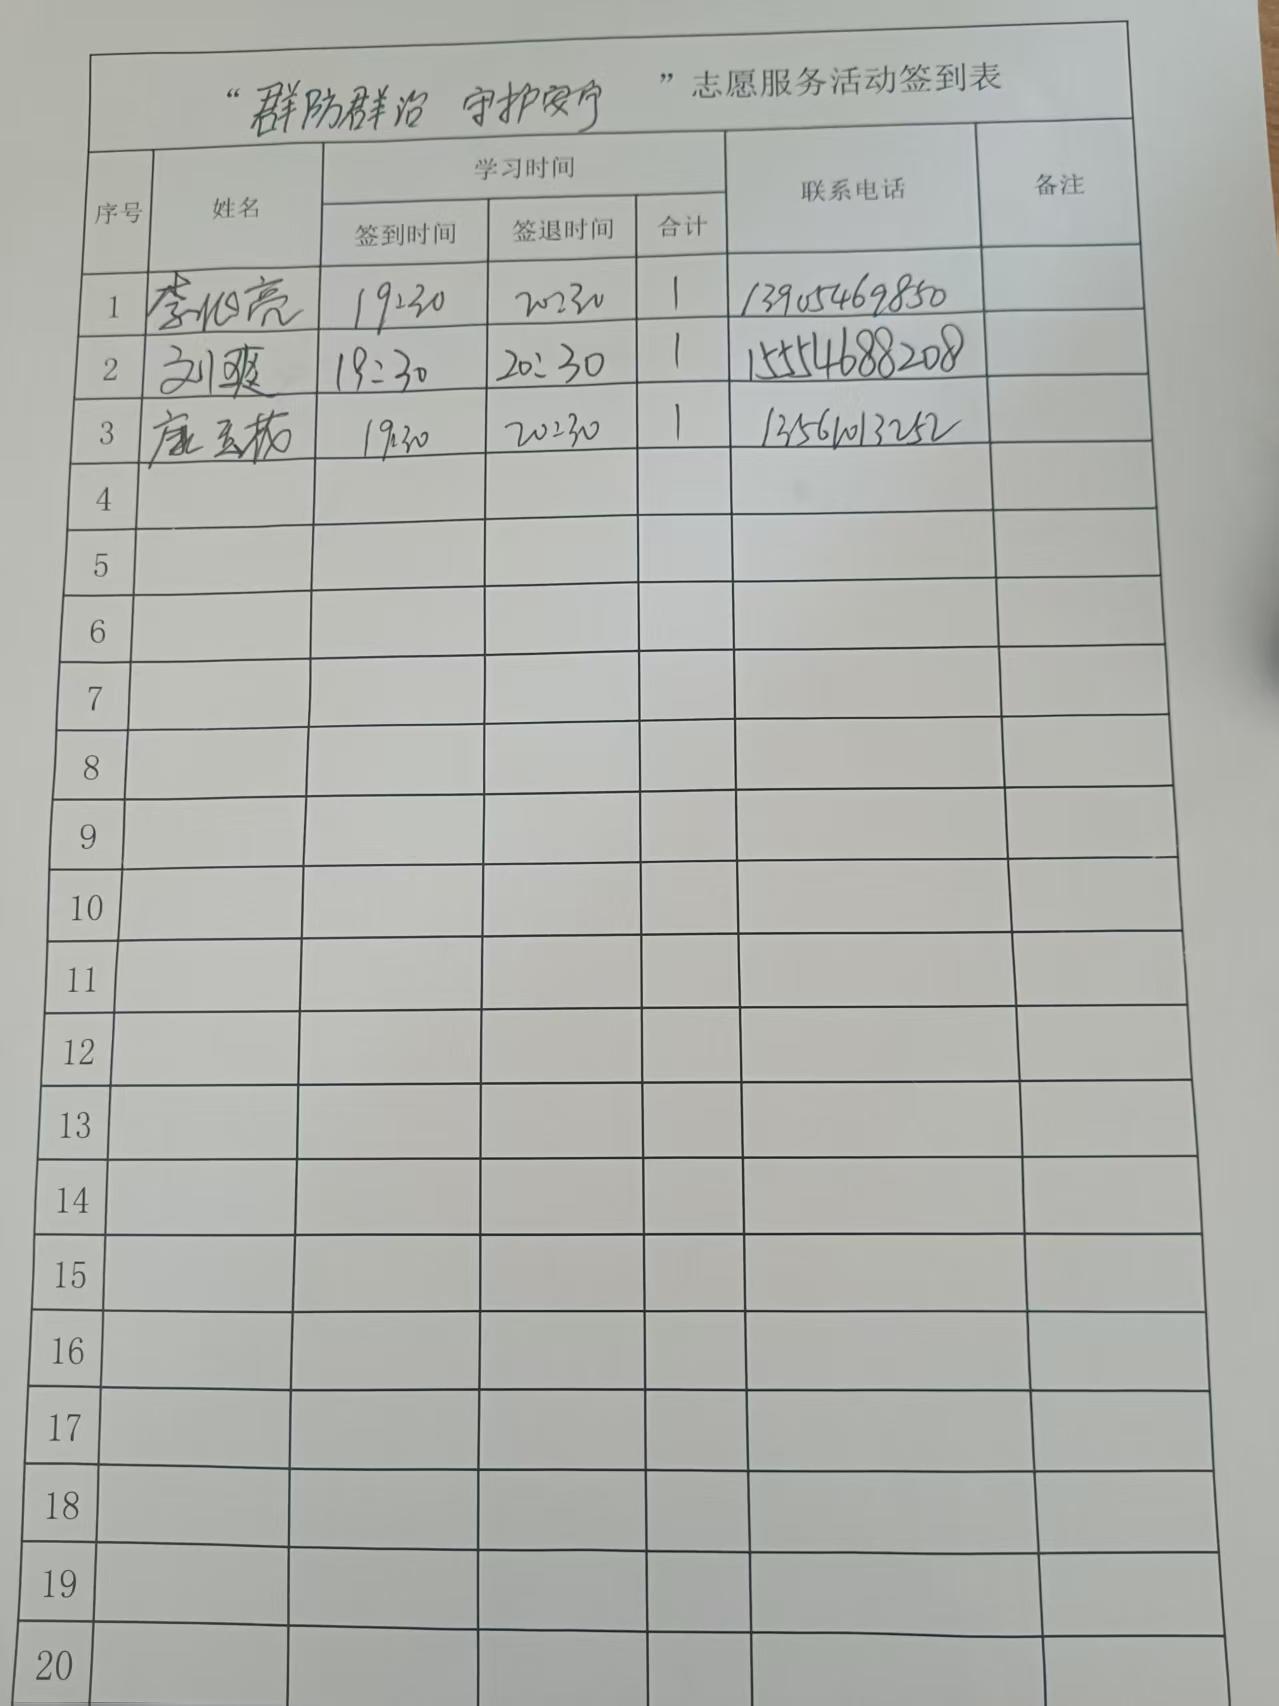 “群防群治 守护安宁”志愿服务活动签到表
序号 姓名 学习时间 联系电话 备注
签到时间 签退时间 合计
1 李 亮 19:30 20:30 1 13905469850
2 刘爽 19:30 20:30 1 15554688208
3 康 19:30 20:30 1 13561013252
4
5
6
7
8
9
10
11
12
13
14
15
16
17
18
19
20